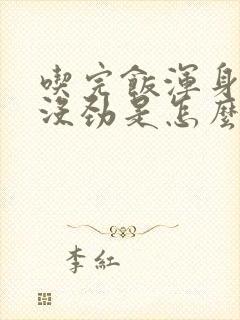 喫完飯渾身
沒勁是怎麼
李紅